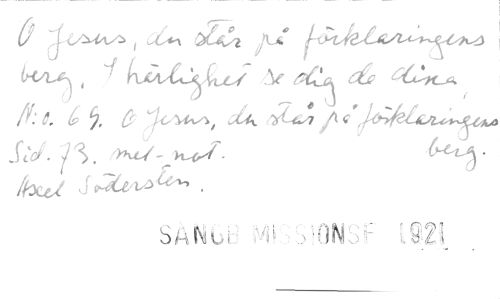 O Jesus, du står på förklaringens
berg, I härlighet se dig de dina,
N:o. 69. O Jesus, du står på förklaringens
berg.
Sid. 73. mel-not.
Axel Södersten.
SÅNGB MISSIONSF 1921